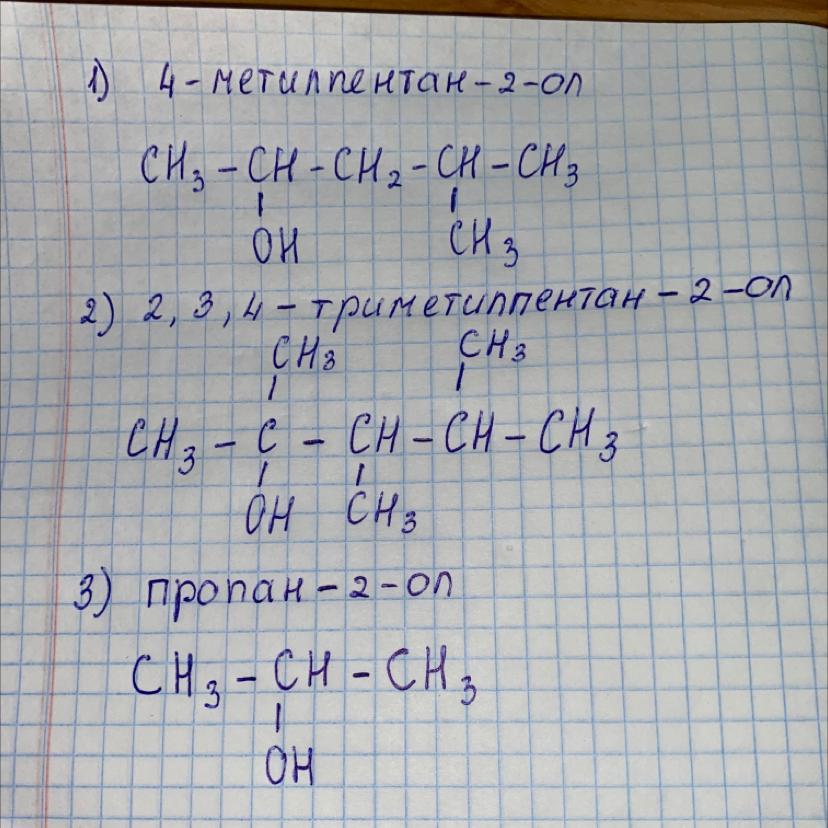 1) 4-метилпентан-2-ол
CH₃-CH-CH₂-CH-CH₃
OH CH₃
2) 2,3,4-триметилпентан-2-ол
CH₃ CH₃
CH₃-C-CH-CH-CH₃
OH CH₃
3) пропан-2-ол
CH₃-CH-CH₃
OH